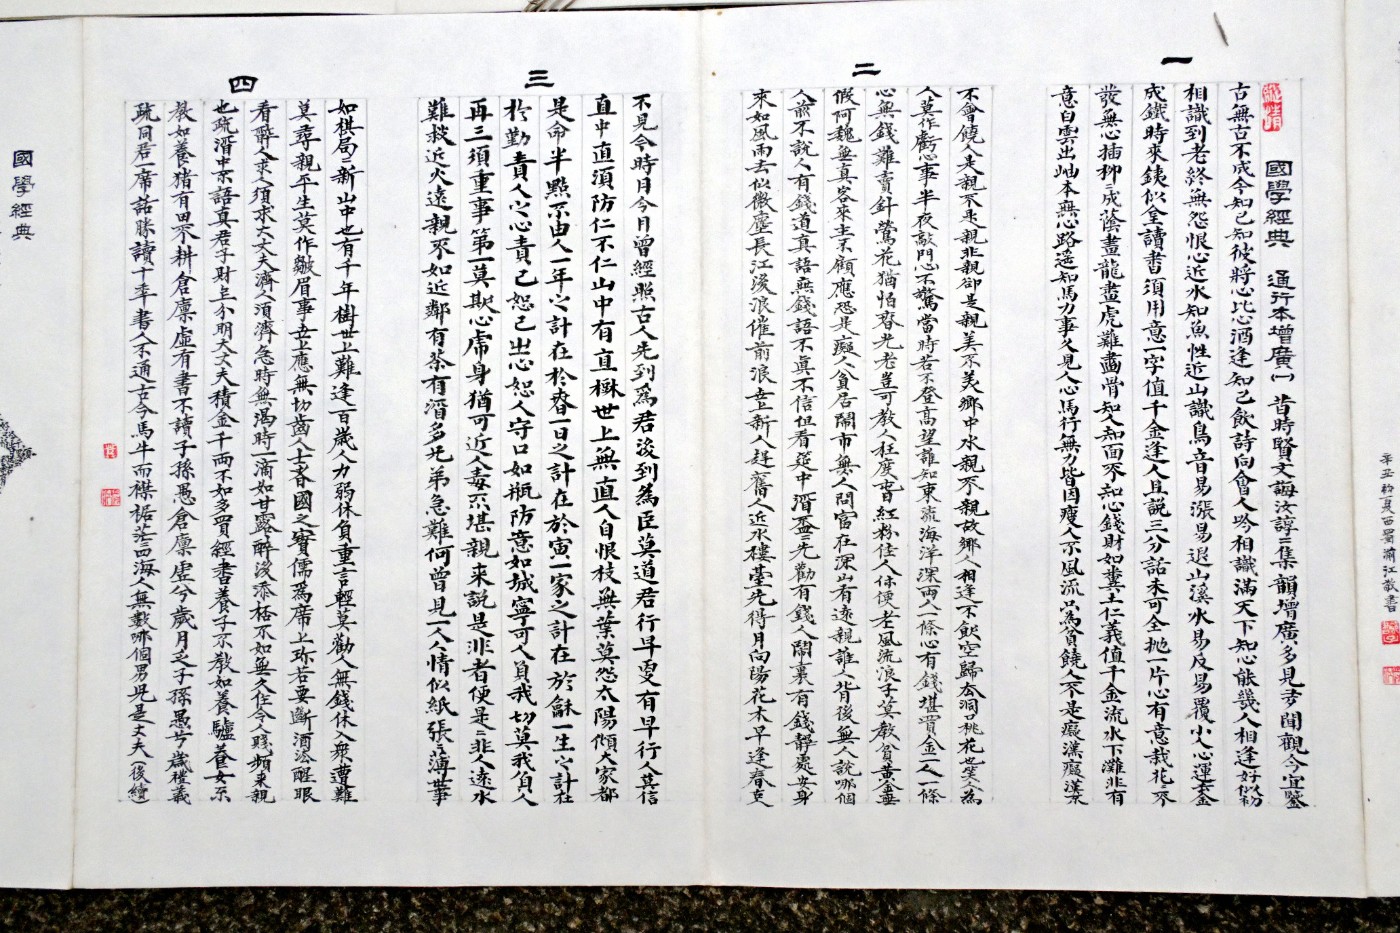 國學經典 通行本增廣(一) 昔時賢文誨汝諄=集韻增廣多見多聞觀今宜鑒
古無古不成今知己知彼將心比心酒逢知己飲詩向會人吟相識滿天下知心能幾人相逢好似初
相識到老終無怨恨心近水知魚性近山識鳥音易漲易退山溪水易反易覆小人心運去金
成鐵時來鐵似金讀書須用意一字值千金逢人且説三分話未可全抛一片心有意栽花=不
發無心插柳=成蔭畫龍畫虎難畫骨知人知面不知心錢財如糞土仁義值千金流水下灘非有
意白雲出岫本無心路遥知馬力事久見人心馬行無力皆因瘦人不風流只為貧饒人不是癡漢癡漢不
一
不會饒人是親不是親非親卻是親美不美鄉中水親不親故鄉人相逢不飲空歸去洞口桃花也笑人為
人莫作虧心事半夜敲門心不驚當時若不登高望誰知東流海洋深兩人一條心有錢堪買金一人一條
心無錢難賣針鶯花猶怕春光老豈可教人枉度春紅粉佳人休便老風流浪子莫教貧黃金無
假阿魏無真客來主不顧應恐是癡人貧居鬧市無人問富在深山有遠親誰人背後無人說哪個
人前不說人有錢道真語無錢語不真不信但看筵中酒盃=先勸有錢人鬧裏有錢靜處安身
來如風雨去似微塵長江後浪催前浪世上新人趕舊人近水樓臺先得月向陽花木早逢春莫
二
不見今時月今月曾經照古人先到為君後到為臣莫道君行早更有早行人莫信
直中直須防仁不仁山中有直樹世上無直人自恨枝無葉莫怨太陽傾大家都
是命半點不由人一年之計在於春一日之計在於寅一家之計在於龢一生之計在
於勤責人之心責己恕己之心恕人守口如瓶防意如城寧可人負我切莫我負人
再三須重事第一莫欺心虎身猶可近人毒不堪親來説是非者便是=非人遠水
難救近火遠親不如近鄰有茶有酒多兄弟急難何曾見一人人情似紙張=薄世事
三
如棋局=新山中也有千年樹世上難逢百歲人力弱休負重言輕莫勸人無錢休入衆遭難
莫尋親平生莫作皺眉事世上應無切齒人士者國之寶儒為席上珍若要斷酒法醒眼
看醉人求人須求大丈夫濟人須濟急時無渴時一滴如甘露醉後添杯不如無久住令人賤頻來親
也疏酒中不語真君子財上分明大丈夫積金千兩不如多買經書養子不教如養驢養女不
教如養猪有田不耕倉廩虛有書不讀子孫愚倉廩虛兮歲月乏子孫愚兮禮義
疏同君一席話勝讀十年書人不通古今馬牛而襟裾茫=四海人無數哪個男兒是丈夫(後續)
四
國學經典